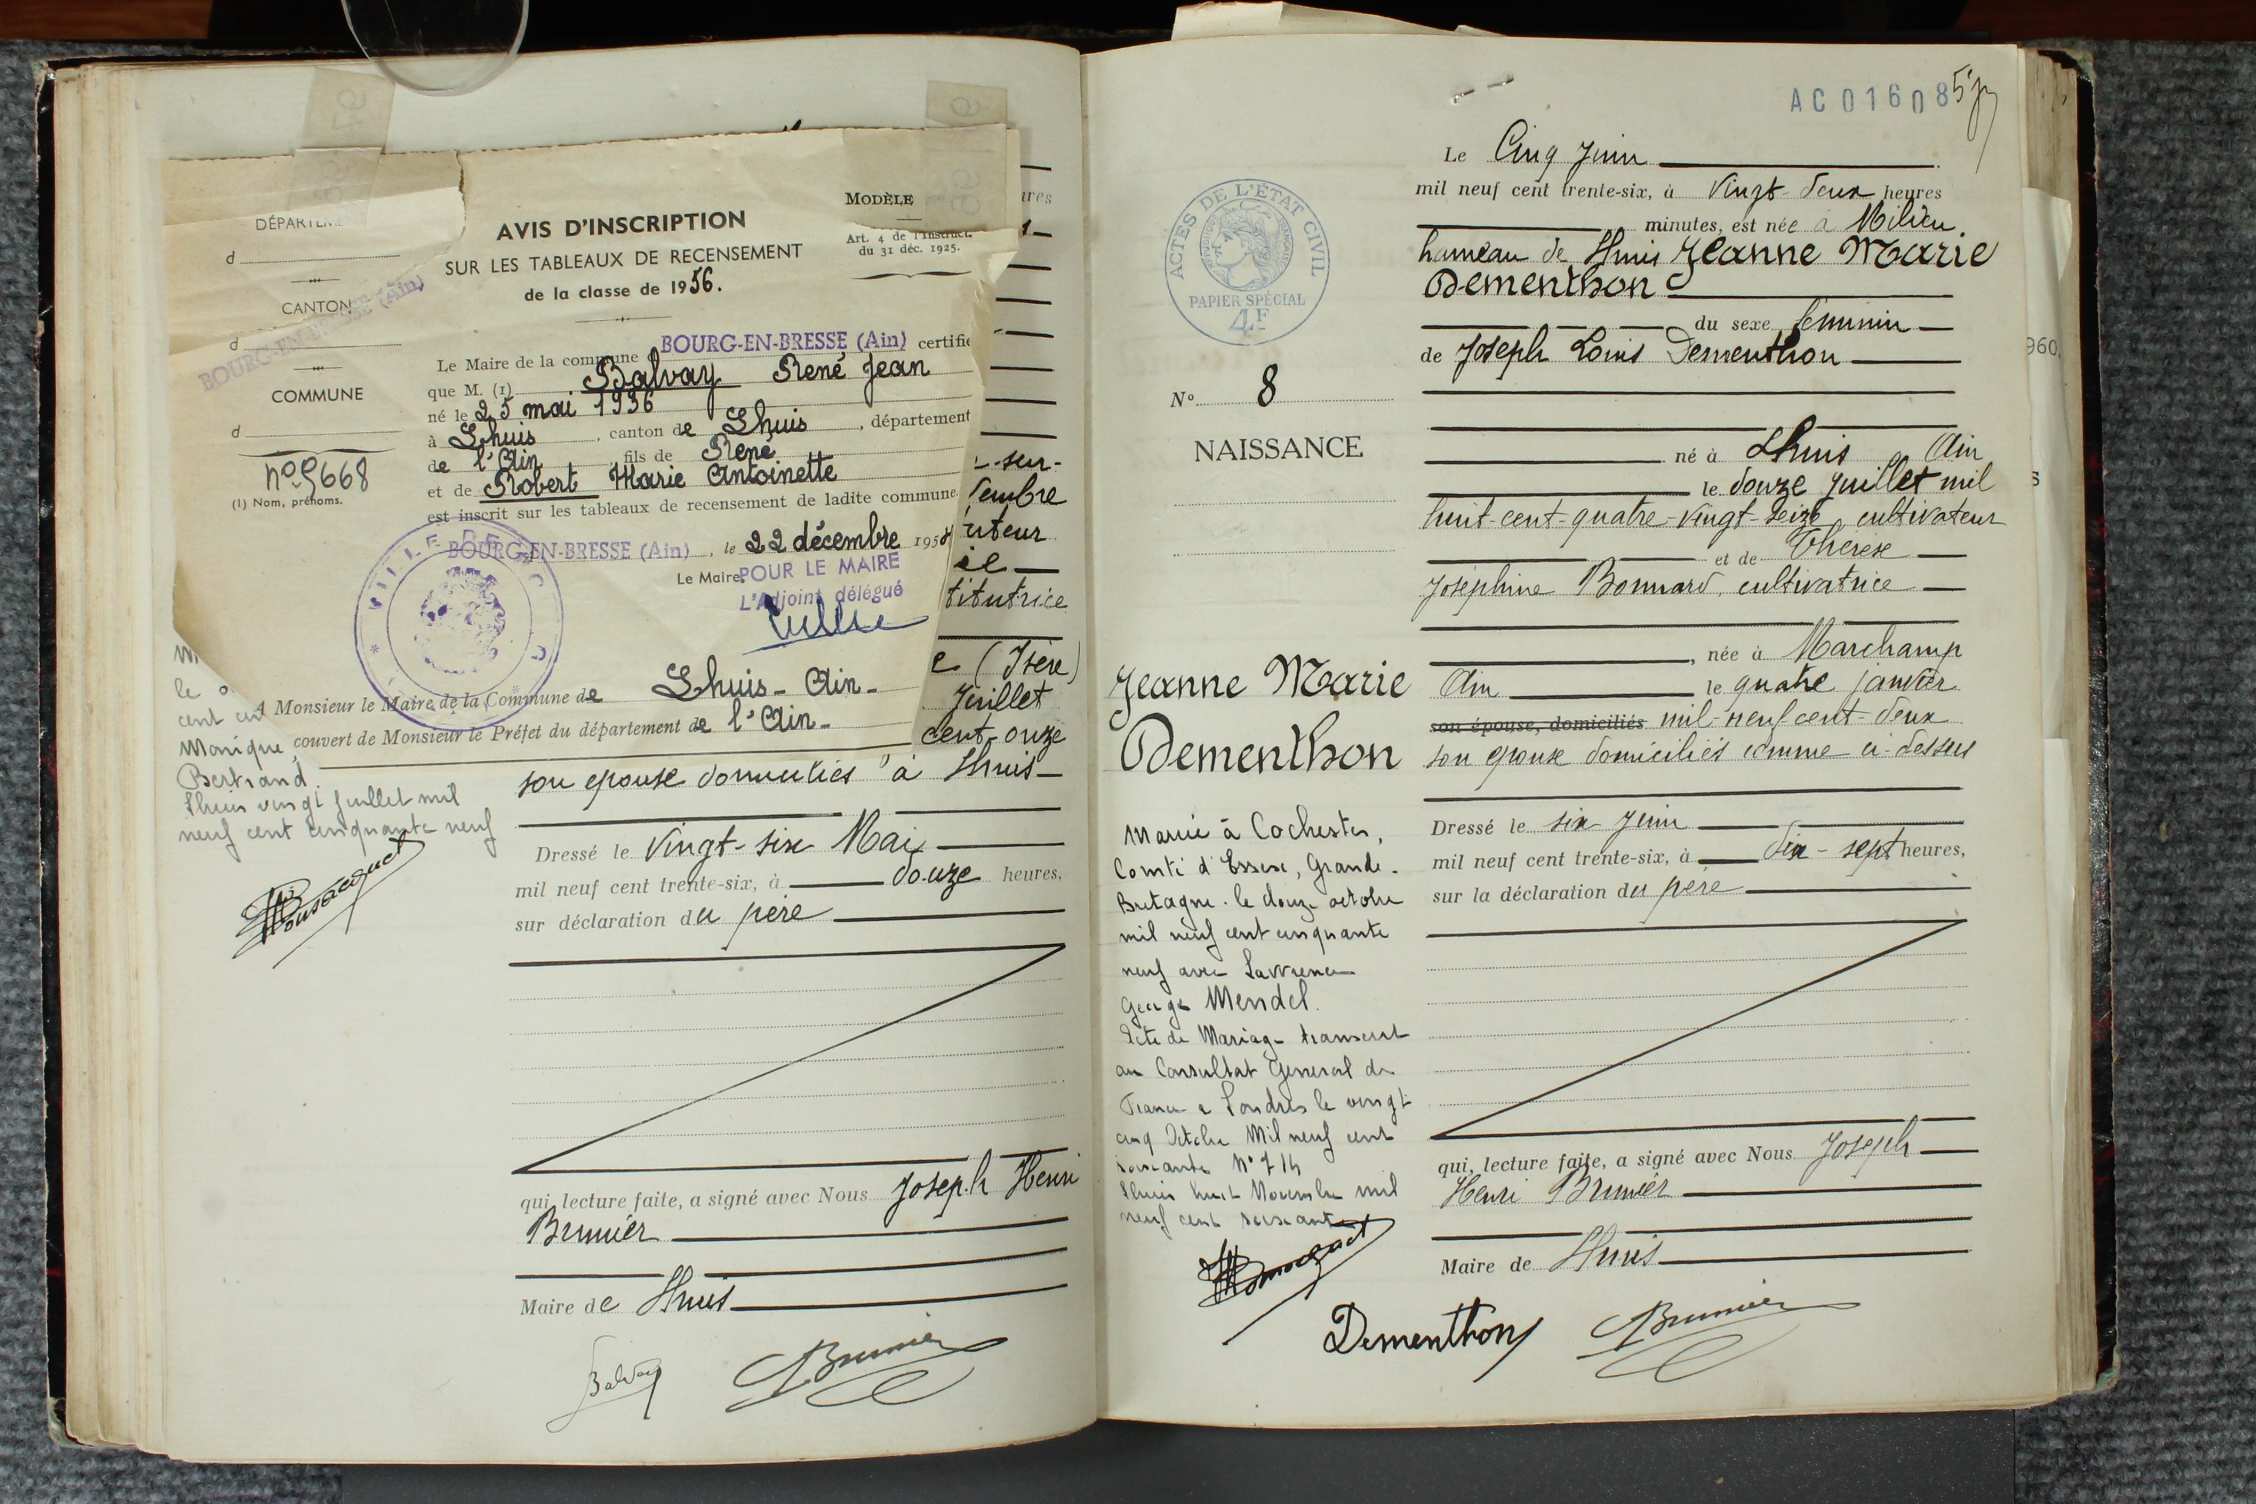 DÉPARTEM
d
CANTON
d
BOURG-EN-BRESSE (Ain)
COMMUNE
d
nº 5668
(1) Nom, prénoms.
AVIS D'INSCRIPTION
SUR LES TABLEAUX DE RECENSEMENT
de la classe de 1956.
MODÈLE
Art. 4 de l'Instruct.
du 31 déc. 1925.
Le Maire de la commune BOURG-EN-BRESSE (Ain) certifie
que M. (1) Balvay René Jean
né le 25 mai 1936
à Lhuis, canton de Lhuis, département
de l'Ain fils de René
et de Robert Marie Antoinette
est inscrit sur les tableaux de recensement de ladite commune.
BOURG-EN-BRESSE (Ain), le 22 décembre 195
Le Maire POUR LE MAIRE
L'Adjoint délégué
A Monsieur le Maire de la Commune de Lhuis - Ain -
couvert de Monsieur le Préfet du département de l'Ain -
ures
-sur-
tembre
uteur
titutrice
e (Isère)
Juillet
cent-onze
le
cent cin
Monique
Bertrand.
Lhuis vingt juillet mil
neuf cent cinquante neuf
son épouse domiciliés à Lhuis
Dressé le vingt-six Mai
mil neuf cent trente-six, à douze heures,
sur déclaration du père
qui, lecture faite, a signé avec Nous Joseph Henri
Brunier
Maire de Lhuis
Balvay
Brunier
AC 01608
ACTES DE L'ÉTAT CIVIL
PAPIER SPÉCIAL
4F
Nº 8
NAISSANCE
Jeanne Marie
Dementhon
Mariée à Cochester,
Comté d'Essex, Grande-
Bretagne. le douze octobre
mil neuf cent cinquante
neuf avec Lawrence
George Mendel.
Acte de Mariage transcrit
au Consultat General de
France a Londres le vingt
cinq Octobre Mil neuf cent
soixante Nº 714
Lhuis huit Novembre mil
neuf cent soixante
Le Cinq Juin
mil neuf cent trente-six, à vingt-deux heures
minutes, est née à Milieu
hameau de Lhuis Jeanne Marie
Dementhon
du sexe féminin
de Joseph Louis Dementhon
né à Lhuis Ain
le douze Juillet mil
huit-cent-quatre-vingt-seize cultivateur
et de Thérèse
Joséphine Bonnard, cultivatrice
, née à Marchamp
Ain le quatre janvier
son épouse, domiciliés mil-neuf cent-deux
son épouse domiciliés comme ci-dessus
Dressé le six Juin
mil neuf cent trente-six, à dix-sept heures,
sur la déclaration du père
qui, lecture faite, a signé avec Nous Joseph
Henri Brunier
Maire de Lhuis
Dementhon
Brunier
960